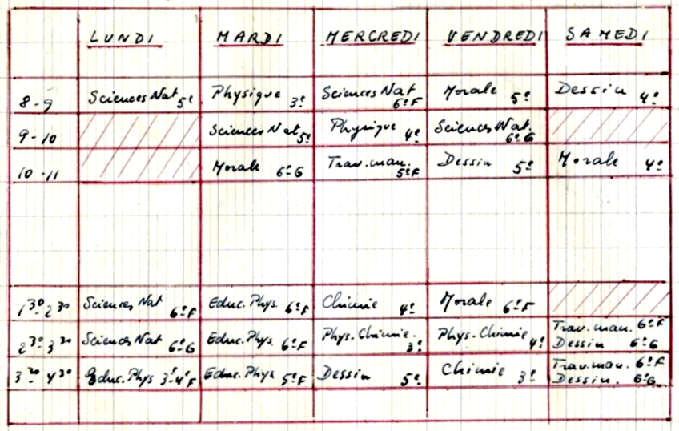 LUNDI MARDI MERCREDI VENDREDI SAMEDI
8-9 Sciences Nat 5e Physique 3e Sciences Nat 6eF Morale 5e Dessin 4e
9-10 Sciences Nat 5e Physique 4e Sciences Nat. 6eG
10-11 Morale 6eG Trav. man. 5eF Dessin 5e Morale 4e
1 30 2 30 Sciences Nat 6eF Educ. Phys 6eF Chimie 4e Morale 6eF
2 30 3 30 Sciences Nat 6eG Educ. Phys 6eF Phys. Chimie. 3e Phys-Chimie 4e Trav. man. 6eF
Dessin 6eG
3 30 4 30 Educ. Phys 3e-4eF Educ. Phys 5eF Dessin 5e Chimie 3e Trav. man. 6eF
Dessin. 6eG